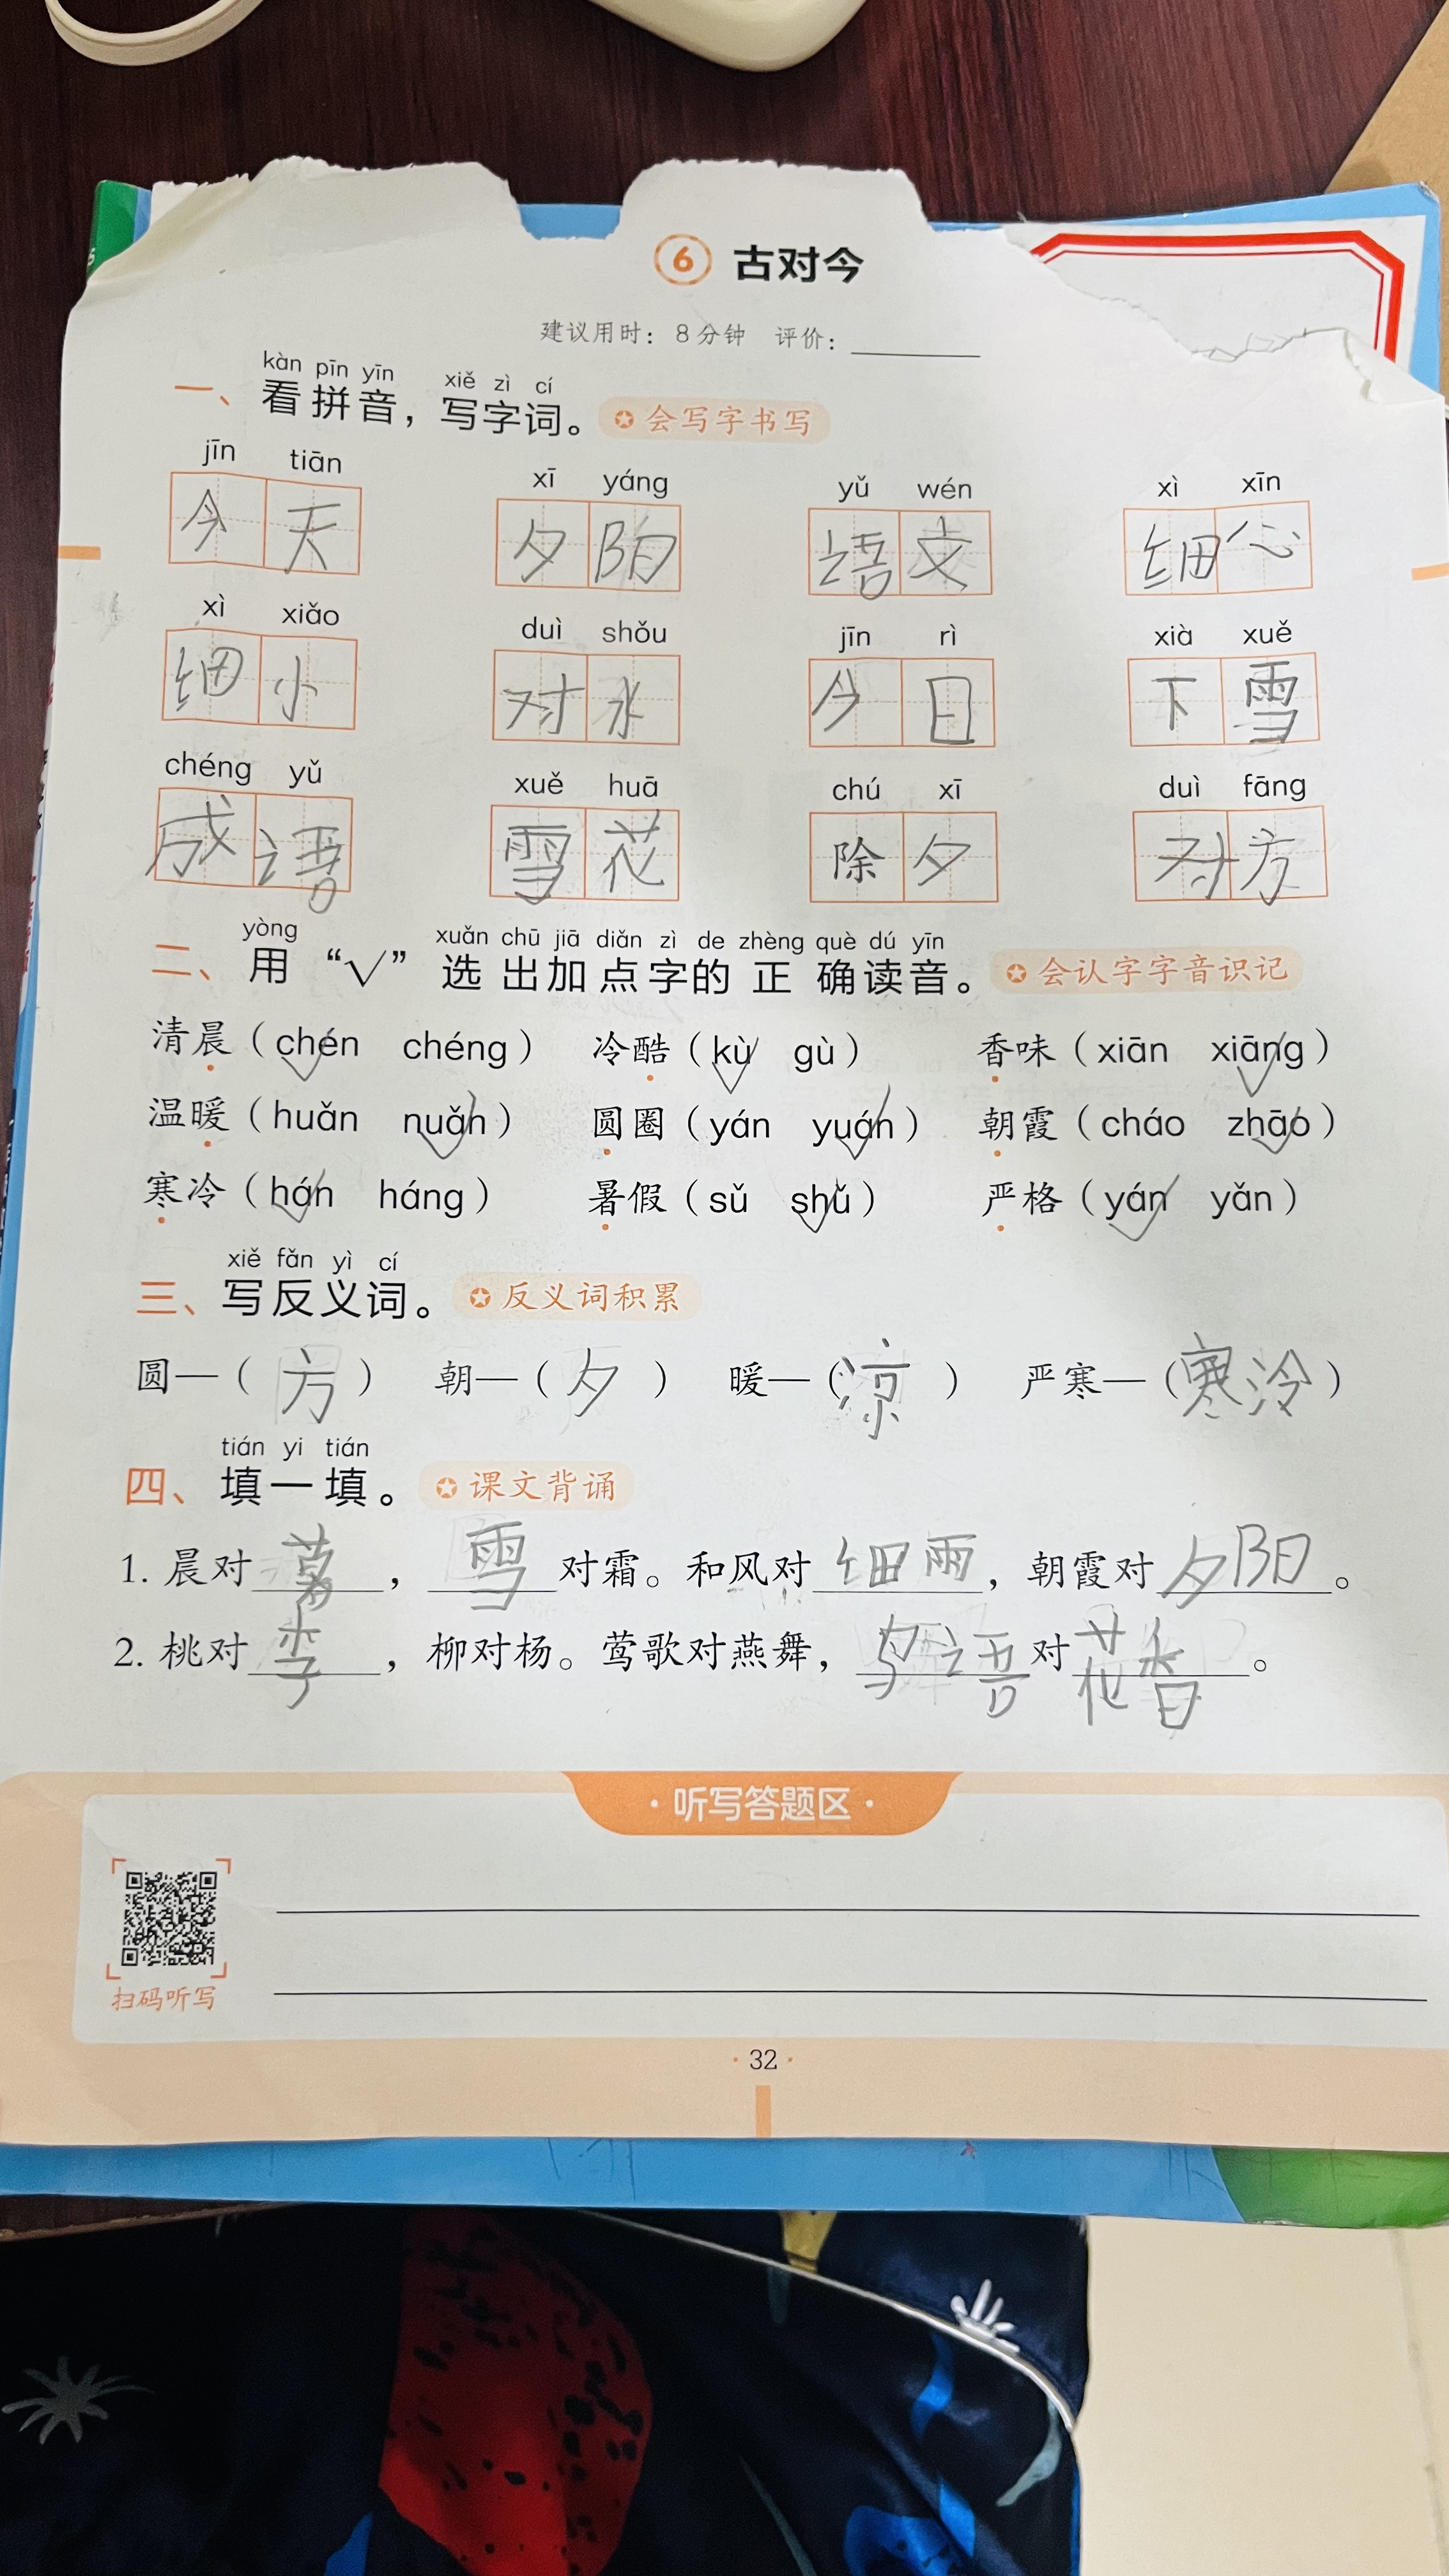 6 古对今
建议用时：8分钟 评价：
kàn pīn yīn xiě zì cí
一、看拼音，写字词。 会写字书写
jīn tiān xī yáng yǔ wén xì xīn
今天 夕阳 语文 细心
xì xiǎo duì shǒu jīn rì xià xuě
细小 对水 今日 下雪
chéng yǔ xuě huā chú xī duì fāng
成语 雪花 除夕 对方
yòng xuǎn chū jiā diǎn zì de zhèng què dú yīn
二、用“√”选出加点字的正确读音。 会认字字音识记
清晨（chén chéng） 冷酷（kù gù） 香味（xiān xiāng）
温暖（huǎn nuǎn） 圆圈（yán yuán） 朝霞（cháo zhāo）
寒冷（hán háng） 暑假（sǔ shǔ） 严格（yán yǎn）
xiě fǎn yì cí
三、写反义词。 反义词积累
圆—（方） 朝—（夕） 暖—（凉） 严寒—（寒冷）
tián yi tián
四、填一填。 课文背诵
1. 晨对暮，雪对霜。和风对细雨，朝霞对夕阳。
2. 桃对李，柳对杨。莺歌对燕舞，鸟语对花香。
·听写答题区·
扫码听写
·32·